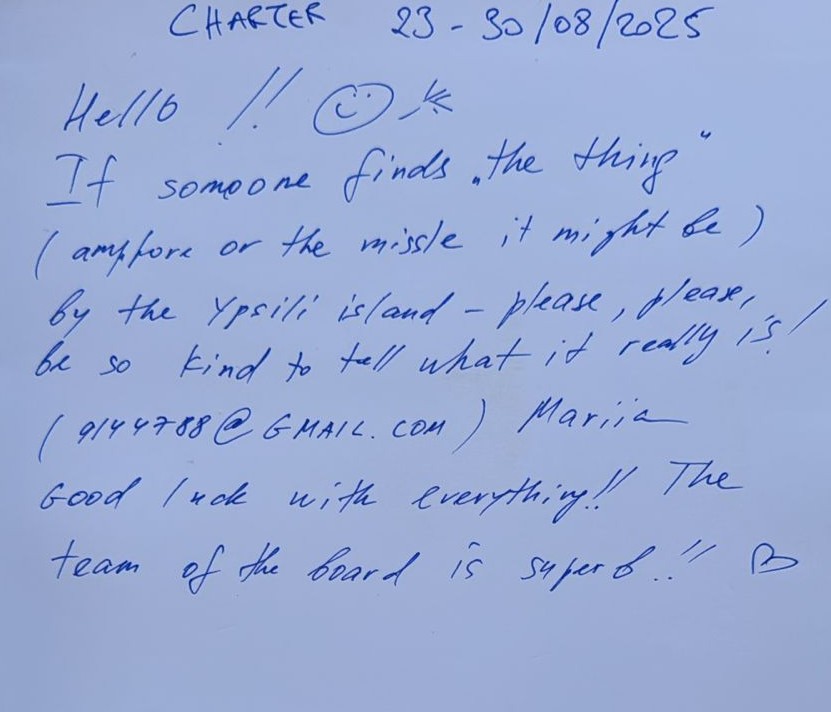 CHARTER 23-30/08/2025
Hello !!
If somoone finds „the thing"
(amphore or the missle it might be)
by the Ypsili island - please, please,
be so kind to tell what it really is!
(9144788@GMAIL.COM) Mariia
Good luck with everything!! The
team of the board is superb!!